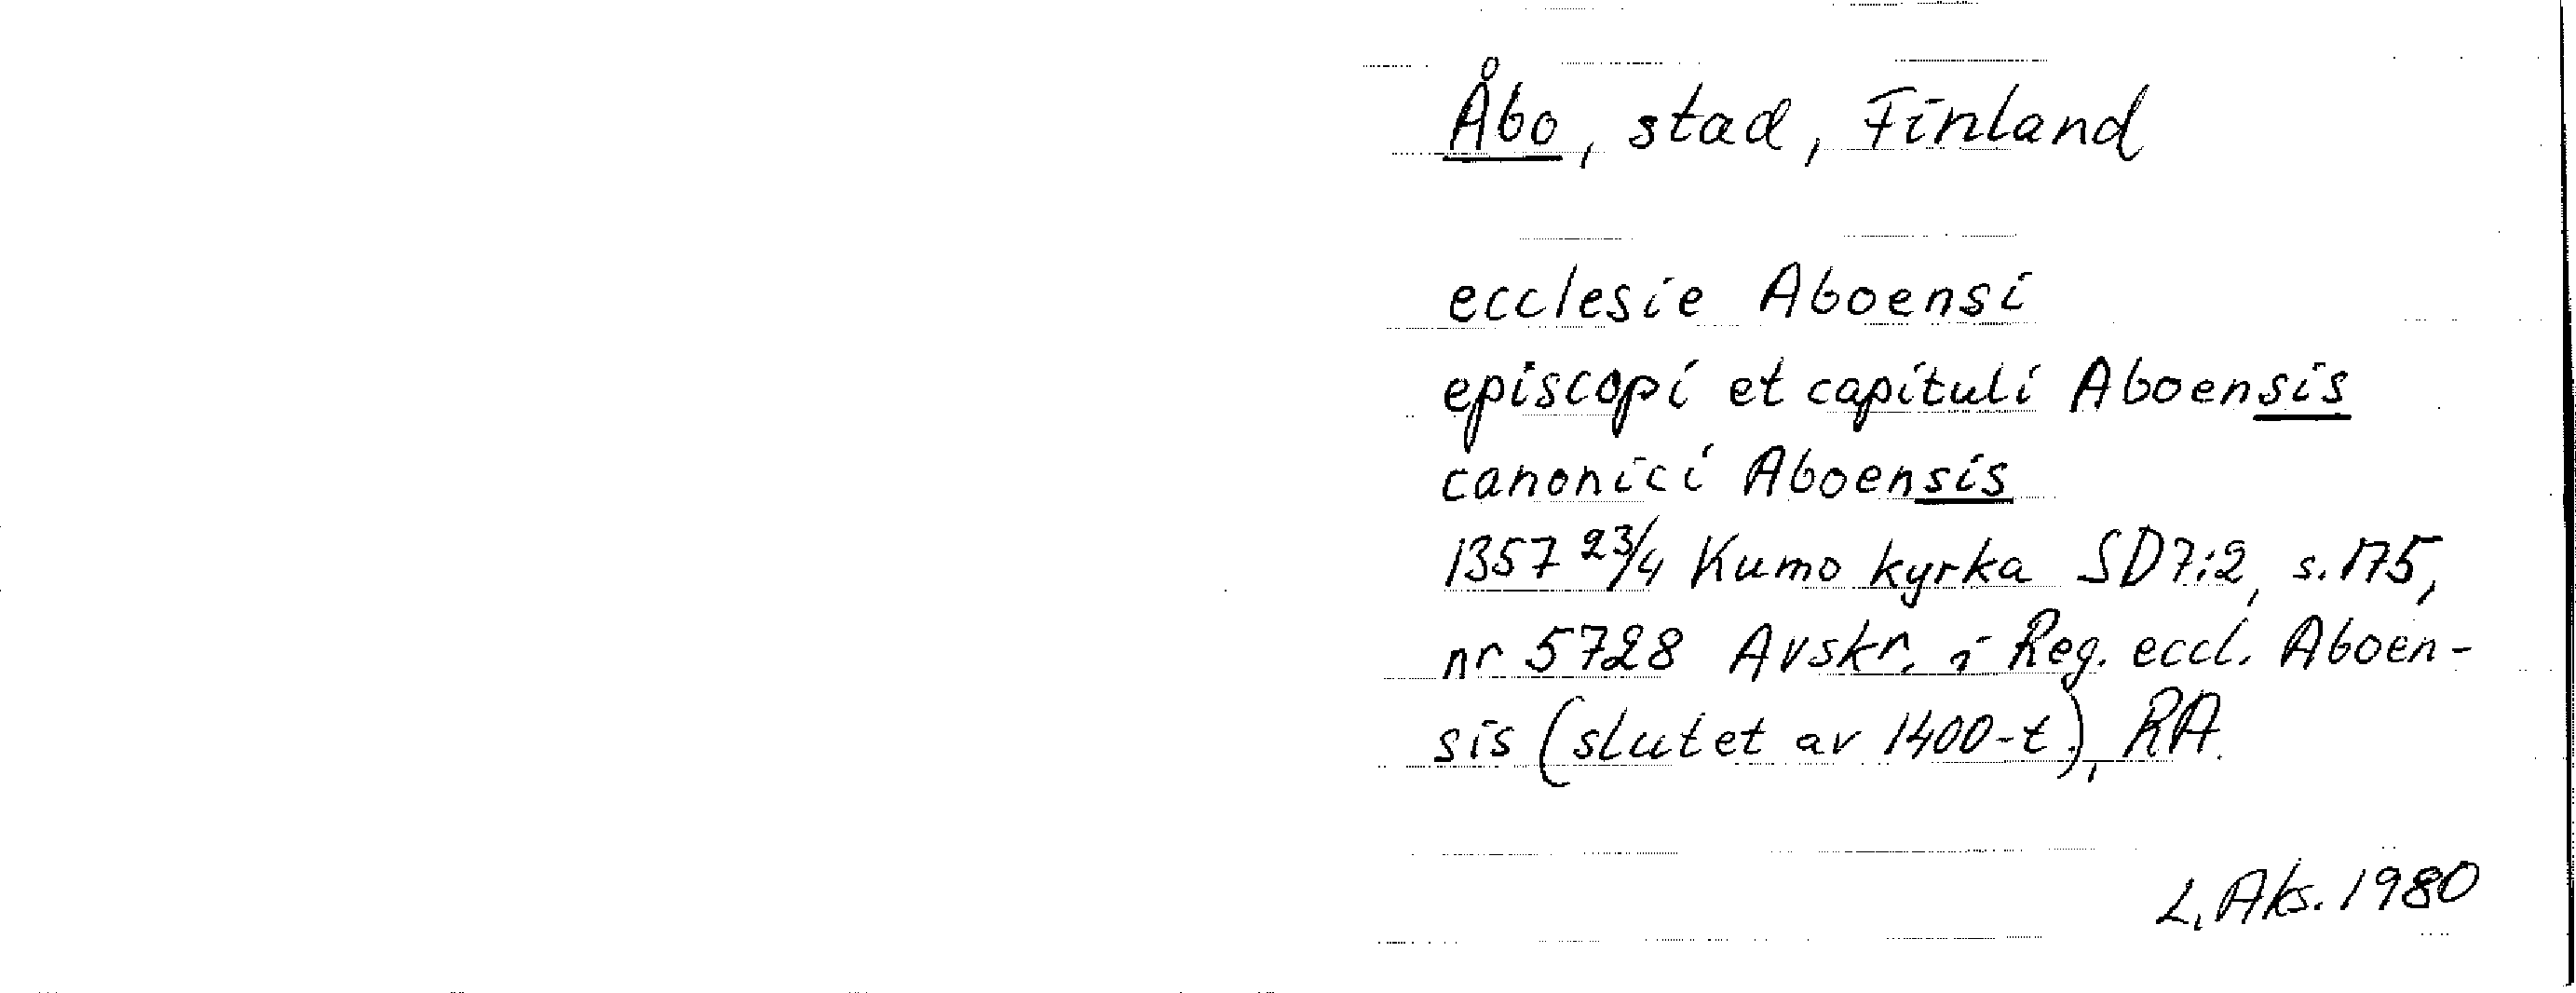 Åbo, stad, Finland
ecclesie Aboensi
episcopi et capituli Aboensis
canonici Aboensis
1357 23/4 Kumo kyrka SD7:2, s. 175,
nr 5728 Avskr. i Reg. eccl. Aboen-
sis (slutet av 1400-t), RA.
L. Aks. 1980